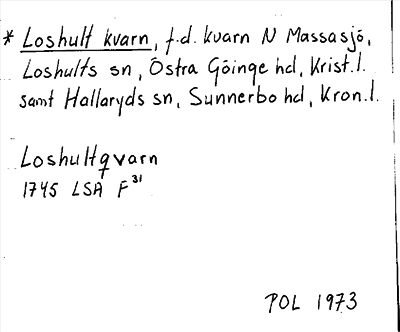 * Loshult kvarn, f.d. kvarn N Massasjö,
Loshults sn, Östra Göinge hd, Krist.l.
samt Hallaryds sn, Sunnerbo hd, Kron.l.
Loshultqvarn
1745 LSA F31
POL 1973